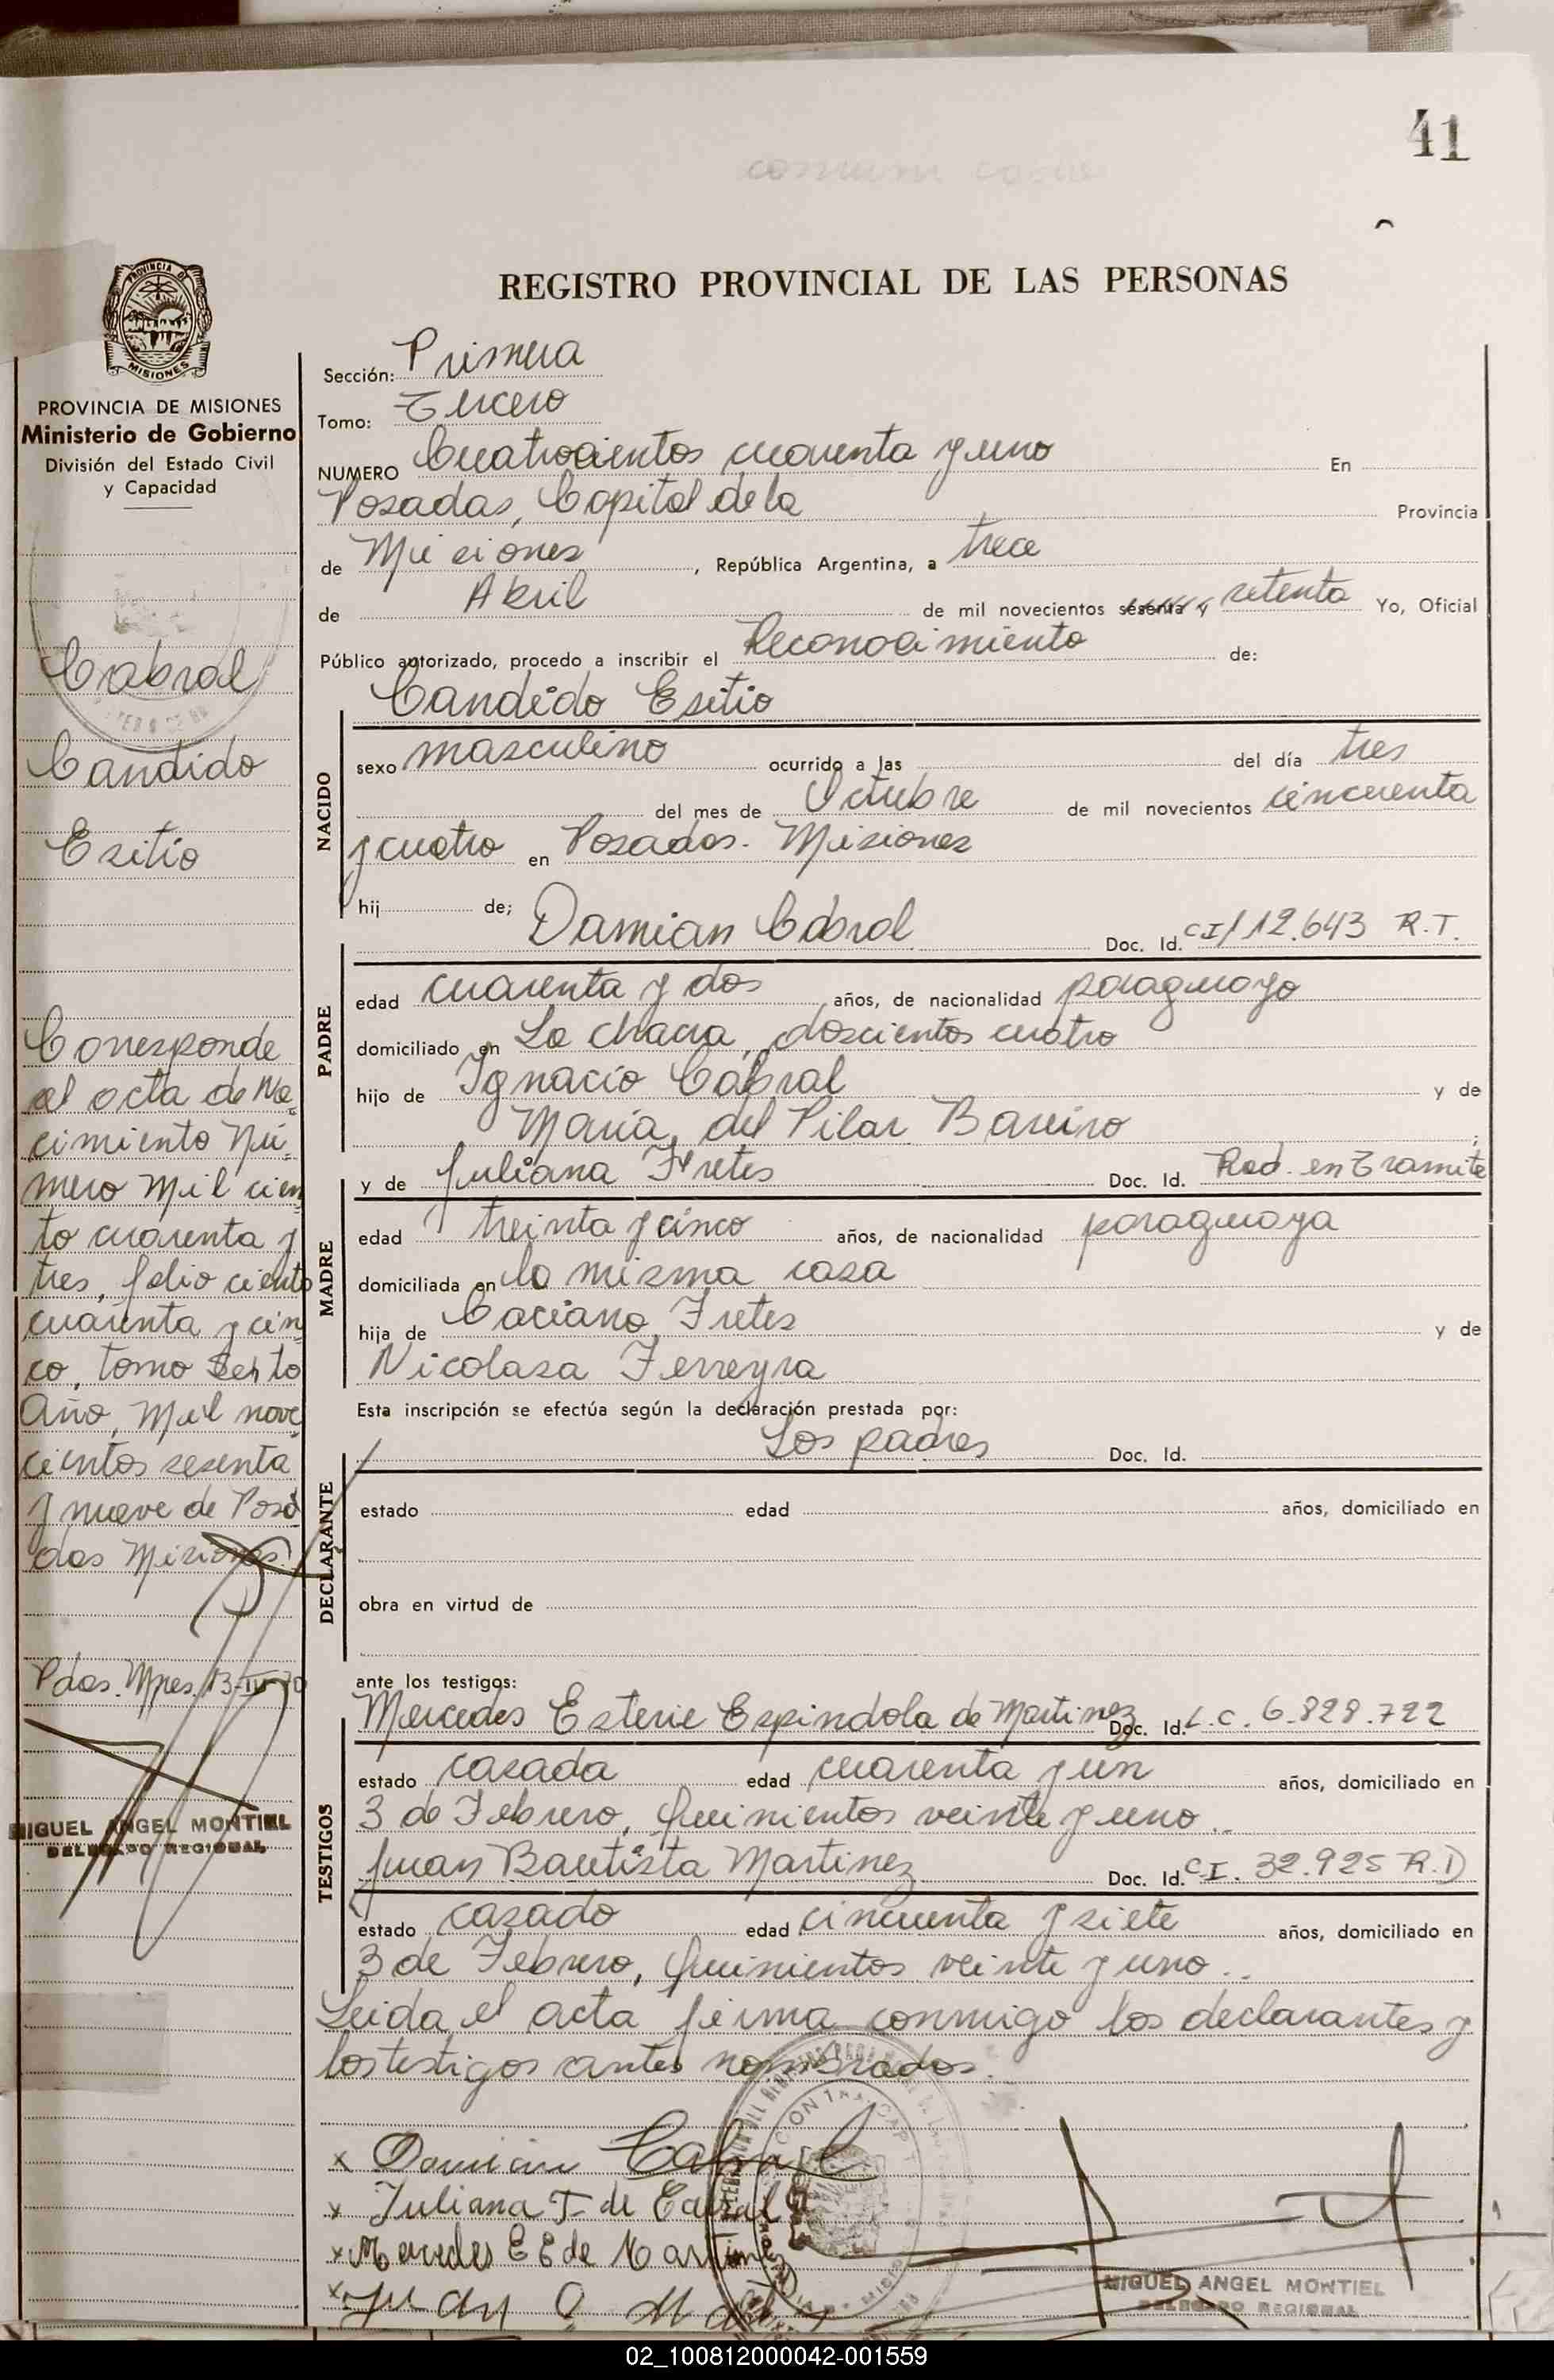 41
REGISTRO PROVINCIAL DE LAS PERSONAS
PROVINCIA DE MISIONES
PROVINCIA DE MISIONES
Ministerio de Gobierno
División del Estado Civil
y Capacidad
Cabral
Candido
Esitio
Corresponde
al acta de Na-
cimiento Nú-
mero Mil cien
to cuarenta y
tres, folio ciento
cuarenta y cin
co, tomo Sexto
Año, Mil nove
cientos sesenta
y nueve de Posa
das Misiones.
Pdas. Mnes. 13-IV-70
MIGUEL ANGEL MONTIEL
DELEGADO REGIONAL
Sección: Primera
Tomo: Tercero
NUMERO Cuatrocientos cuarenta y uno En
Posadas, Capital de la Provincia
de Misiones, República Argentina, a trece
de Abril de mil novecientos sesenta y setenta Yo, Oficial
Público autorizado, procedo a inscribir el Reconocimiento de:
Candido Esitio
NACIDO
sexo masculino ocurrido a las del día tres
del mes de Octubre de mil novecientos cincuenta
y cuatro en Posadas. Misiones
hij de; Damian Cabral Doc. Id. CI/12.643 R.T.
PADRE
edad cuarenta y dos años, de nacionalidad paraguayo
domiciliado en La chacra, doscientos cuatro
hijo de Ignacio Cabral y de
María del Pilar Bareiro;
y de Juliana Fretes Doc. Id. Rad. en Tramite
MADRE
edad treinta y cinco años, de nacionalidad paraguaya
domiciliada en la misma casa
hija de Caciano Fretes y de
Nicolasa Ferreyra
Esta inscripción se efectúa según la declaración prestada por:
Los padres Doc. Id.
DECLARANTE
estado edad años, domiciliado en
obra en virtud de
ante los testigos:
Mercedes Esterie Espindola de Martinez Doc. Id. L.C. 6.828.722
TESTIGOS
estado casada edad cuarenta y un años, domiciliado en
3 de Febrero, Quinientos veinte y uno..
Juan Bautista Martinez Doc. Id. CI. 32.925 R.D
estado casado edad cincuenta y siete años, domiciliado en
3 de Febrero, Quinientos veinte y uno..
Leida el acta firma conmigo los declarantes y
los testigos antes nombrados.
x Damian Cabral
x Juliana F. de Cabral
x Mercedes E E de Martinez
x Juan
MIGUEL ANGEL MONTIEL
DELEGADO REGIONAL
02_100812000042-001559